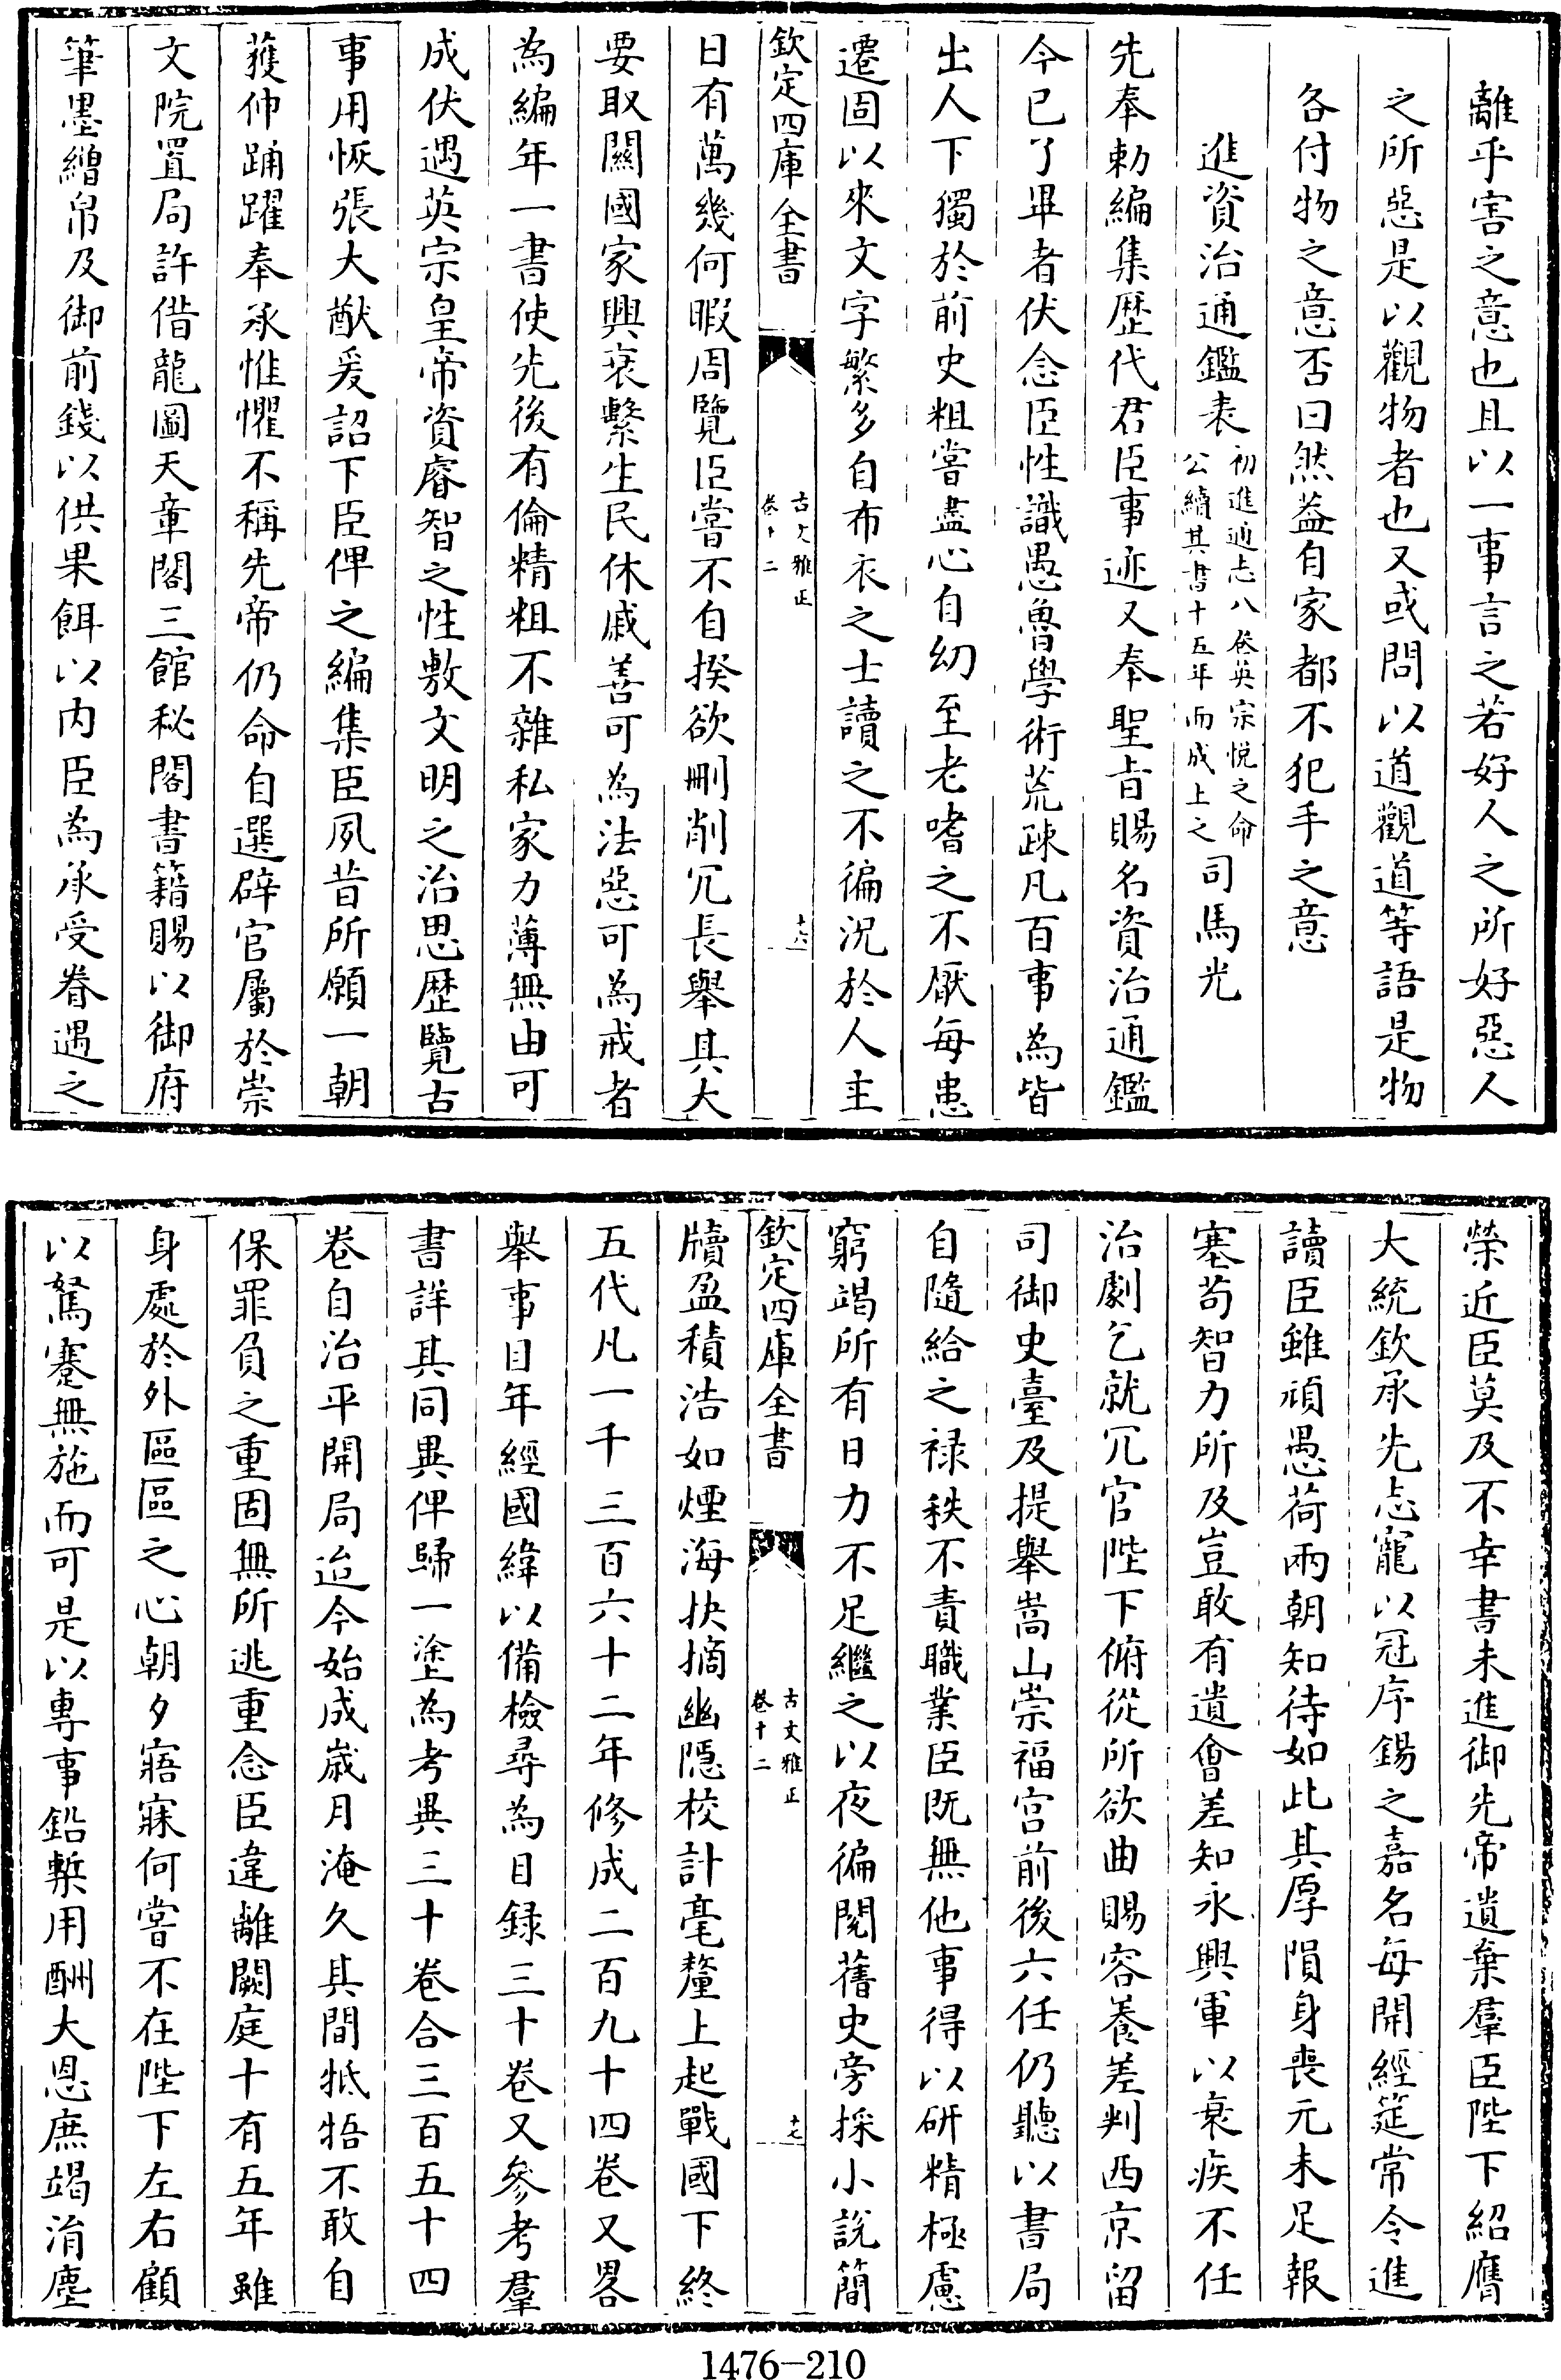 離乎害之意也且以一事言之若好人之所好惡人
之所惡是以觀物者也又或問以道觀道等語是物
各付物之意否曰然葢自家都不犯手之意
進資治通鑑表初進通志八卷英宗悅之命公續其書十五年而成上之司馬光
先奉勅編集歴代君臣事迹又奉聖旨賜名資治通鑑
今已了畢者伏念臣性識愚魯學術荒疎凡百事為皆
出人下獨於前史粗嘗盡心自幼至老嗜之不厭每患
遷固以來文字繁多自布衣之士讀之不徧況於人主
欽定四庫全書
古文雅正
卷十二
十六
日有萬幾何暇周覽臣嘗不自揆欲刪削冗長舉其大
要取闗國家興衰繫生民休戚善可為法惡可為戒者
為編年一書使先後有倫精粗不雜私家力薄無由可
成伏遇英宗皇帝資睿智之性敷文明之治思歴覽古
事用恢張大猷爰詔下臣俾之編集臣夙昔所願一朝
獲伸踊躍奉承惟懼不稱先帝仍命自選辟官屬於崇
文院置局許借龍圖天章閣三館秘閣書籍賜以御府
筆墨繒帛及御前錢以供果餌以内臣為承受眷遇之
榮近臣莫及不幸書未進御先帝遺棄羣臣陛下紹膺
大統欽承先志寵以冠序錫之嘉名每開經筵常令進
讀臣雖頑愚荷兩朝知待如此其厚隕身喪元未足報
塞苟智力所及豈敢有遺會差知永興軍以衰疾不任
治劇乞就冗官陛下俯從所欲曲賜容養差判西京留
司御史臺及提舉嵩山崇福宫前後六任仍聽以書局
自隨給之禄秩不責職業臣既無他事得以研精極慮
窮竭所有日力不足繼之以夜徧閲舊史旁採小說簡
欽定四庫全書
古文雅正
卷十二
十七
牘盈積浩如煙海抉摘幽隠校計毫釐上起戰國下終
五代凡一千三百六十二年修成二百九十四卷又畧
舉事目年經國緯以備檢尋為目録三十卷又參考羣
書詳其同異俾歸一塗為考異三十卷合三百五十四
卷自治平開局迨今始成嵗月淹久其間牴牾不敢自
保罪負之重固無所逃重念臣違離闕庭十有五年雖
身處於外區區之心朝夕寤寐何嘗不在陛下左右顧
以駑蹇無施而可是以專事鉛槧用酬大恩庶竭涓塵
1476-210